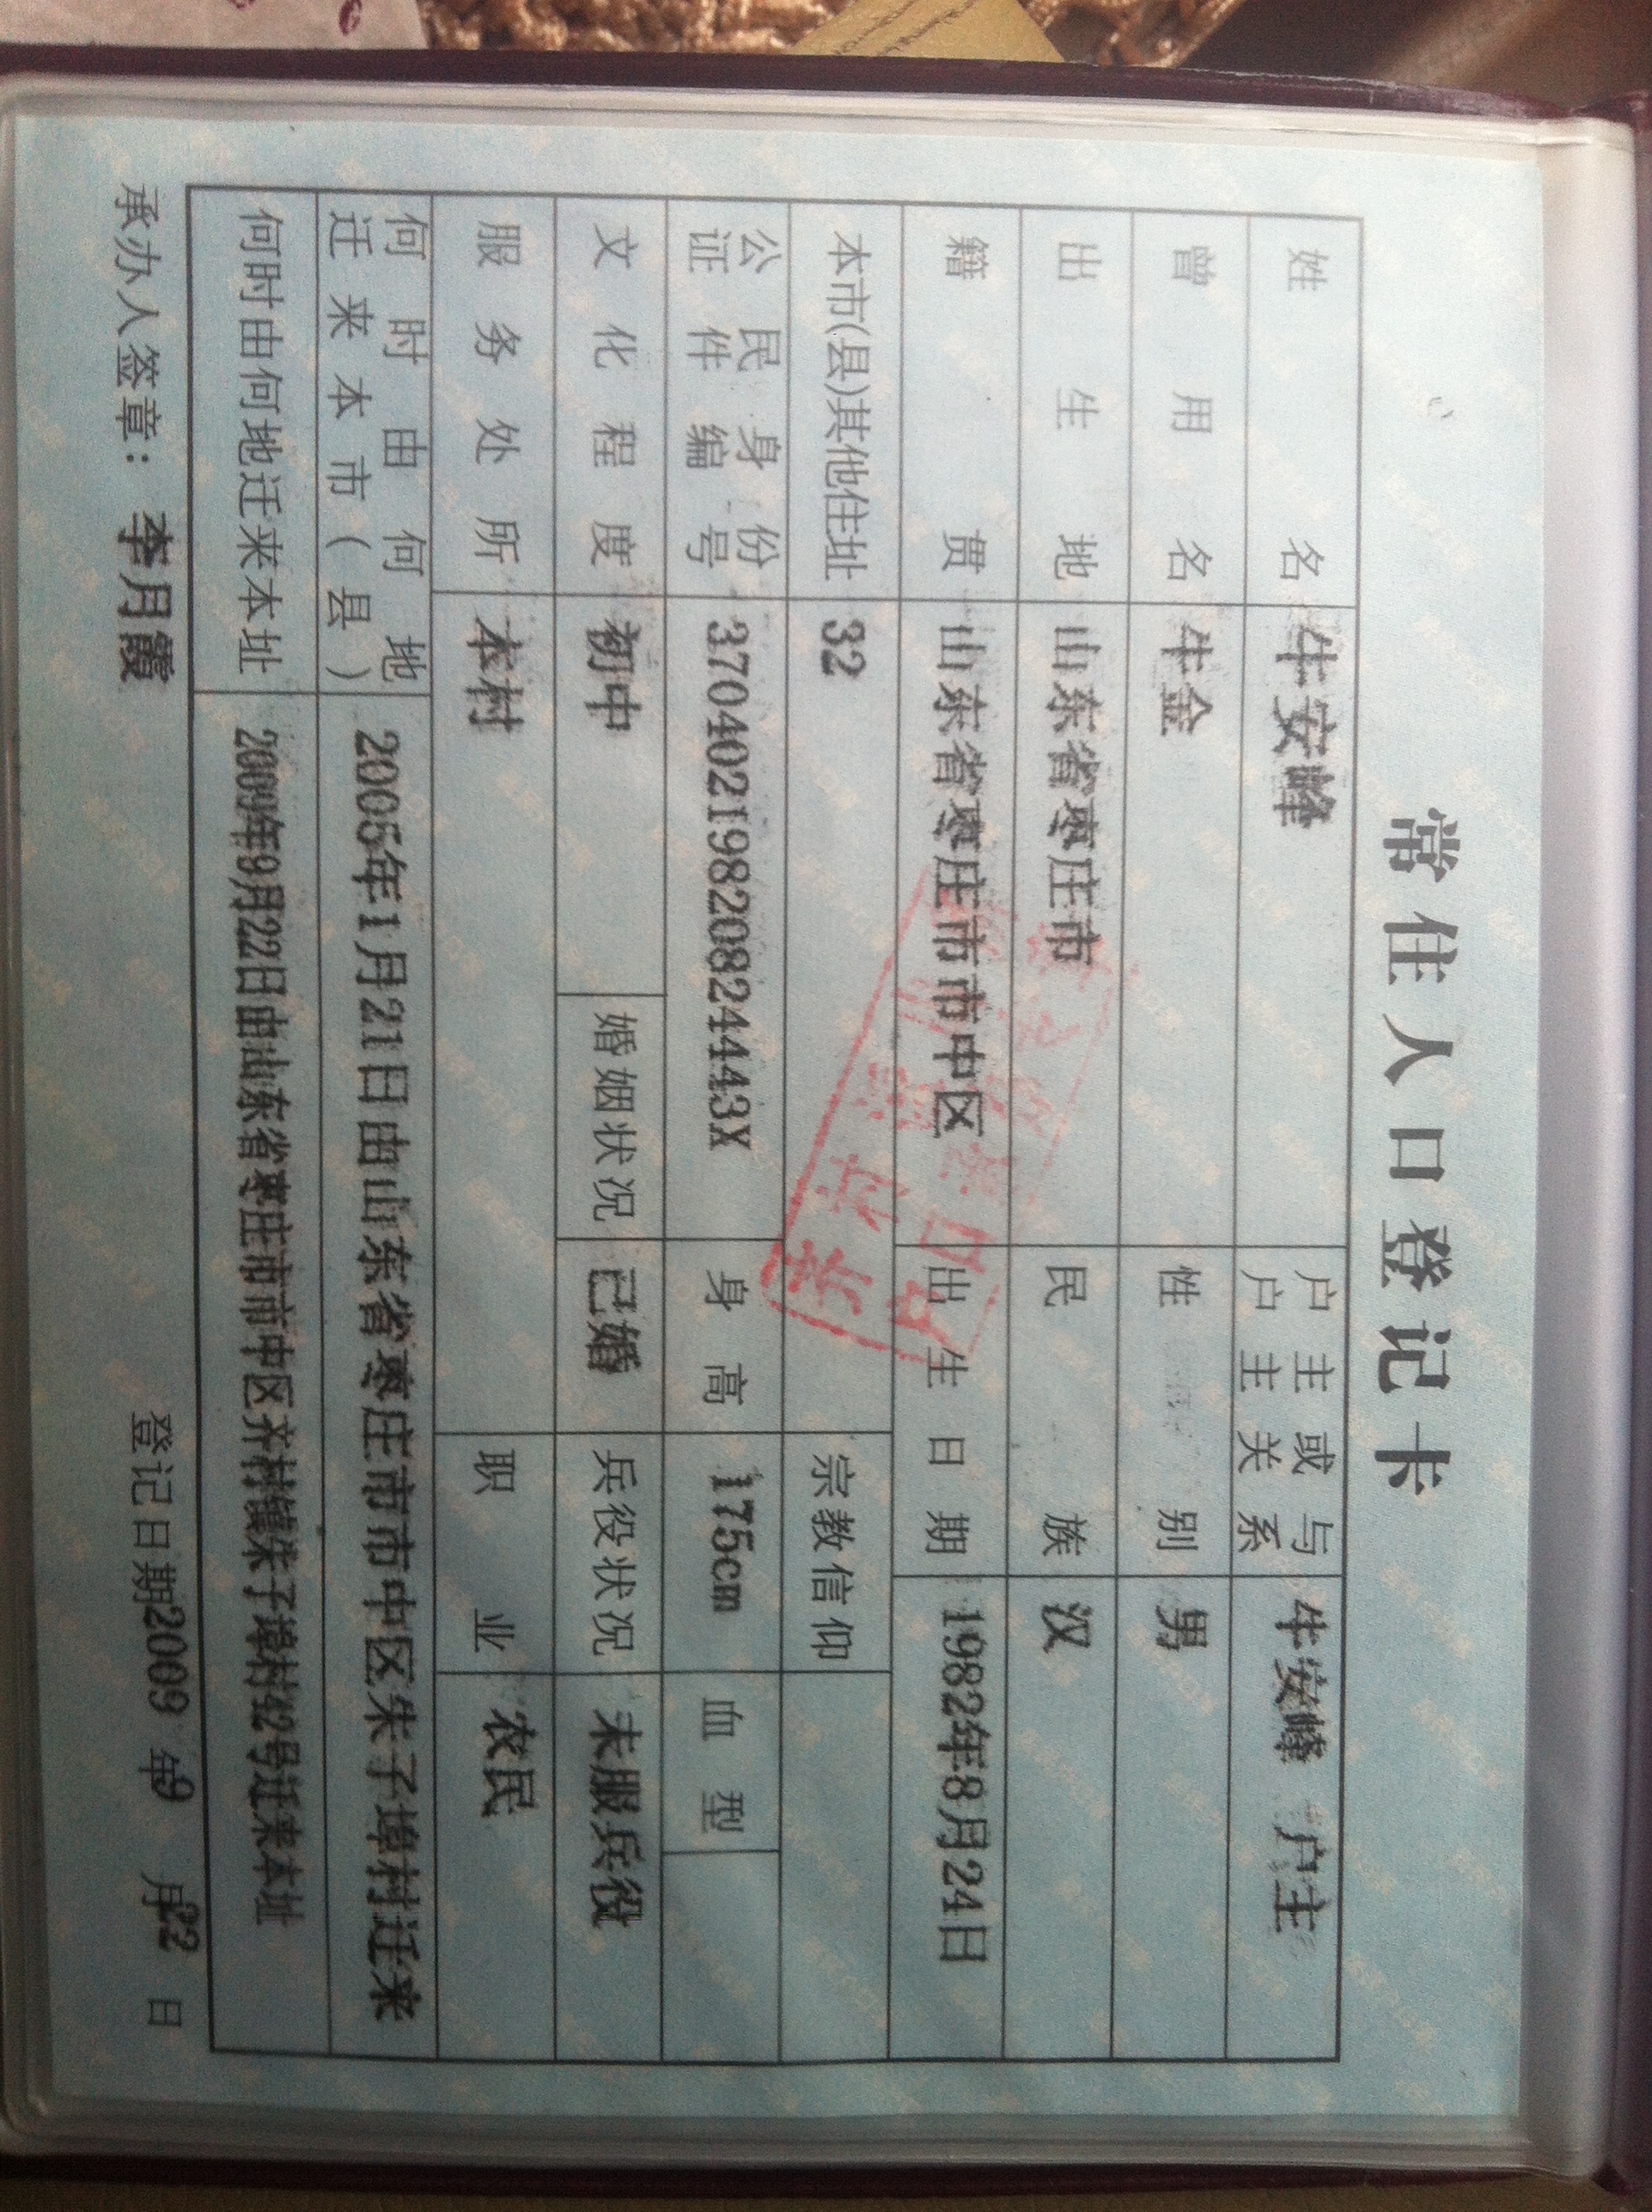 常住人口登记卡
姓名 牛安峰 户主或与户主关系 牛安峰 户主
曾用名 牛金 性别 男
出生地 山东省枣庄市 民族 汉
籍贯 山东省枣庄市市中区 出生日期 1982年8月24日
本市(县)其他住址 32 宗教信仰
公民身份证件编号 37040219820824443X 身高 175cm 血型
文化程度 初中 婚姻状况 已婚 兵役状况 未服兵役
服务处所 本村 职业 农民
何时由何地迁来本市(县) 2005年1月21日由山东省枣庄市市中区朱子埠村迁来
何时由何地迁来本址 2009年9月22日由山东省枣庄市市中区齐村镇朱子埠村42号迁来本址
承办人签章：李月霞 登记日期2009年9月22日
户口
齐村